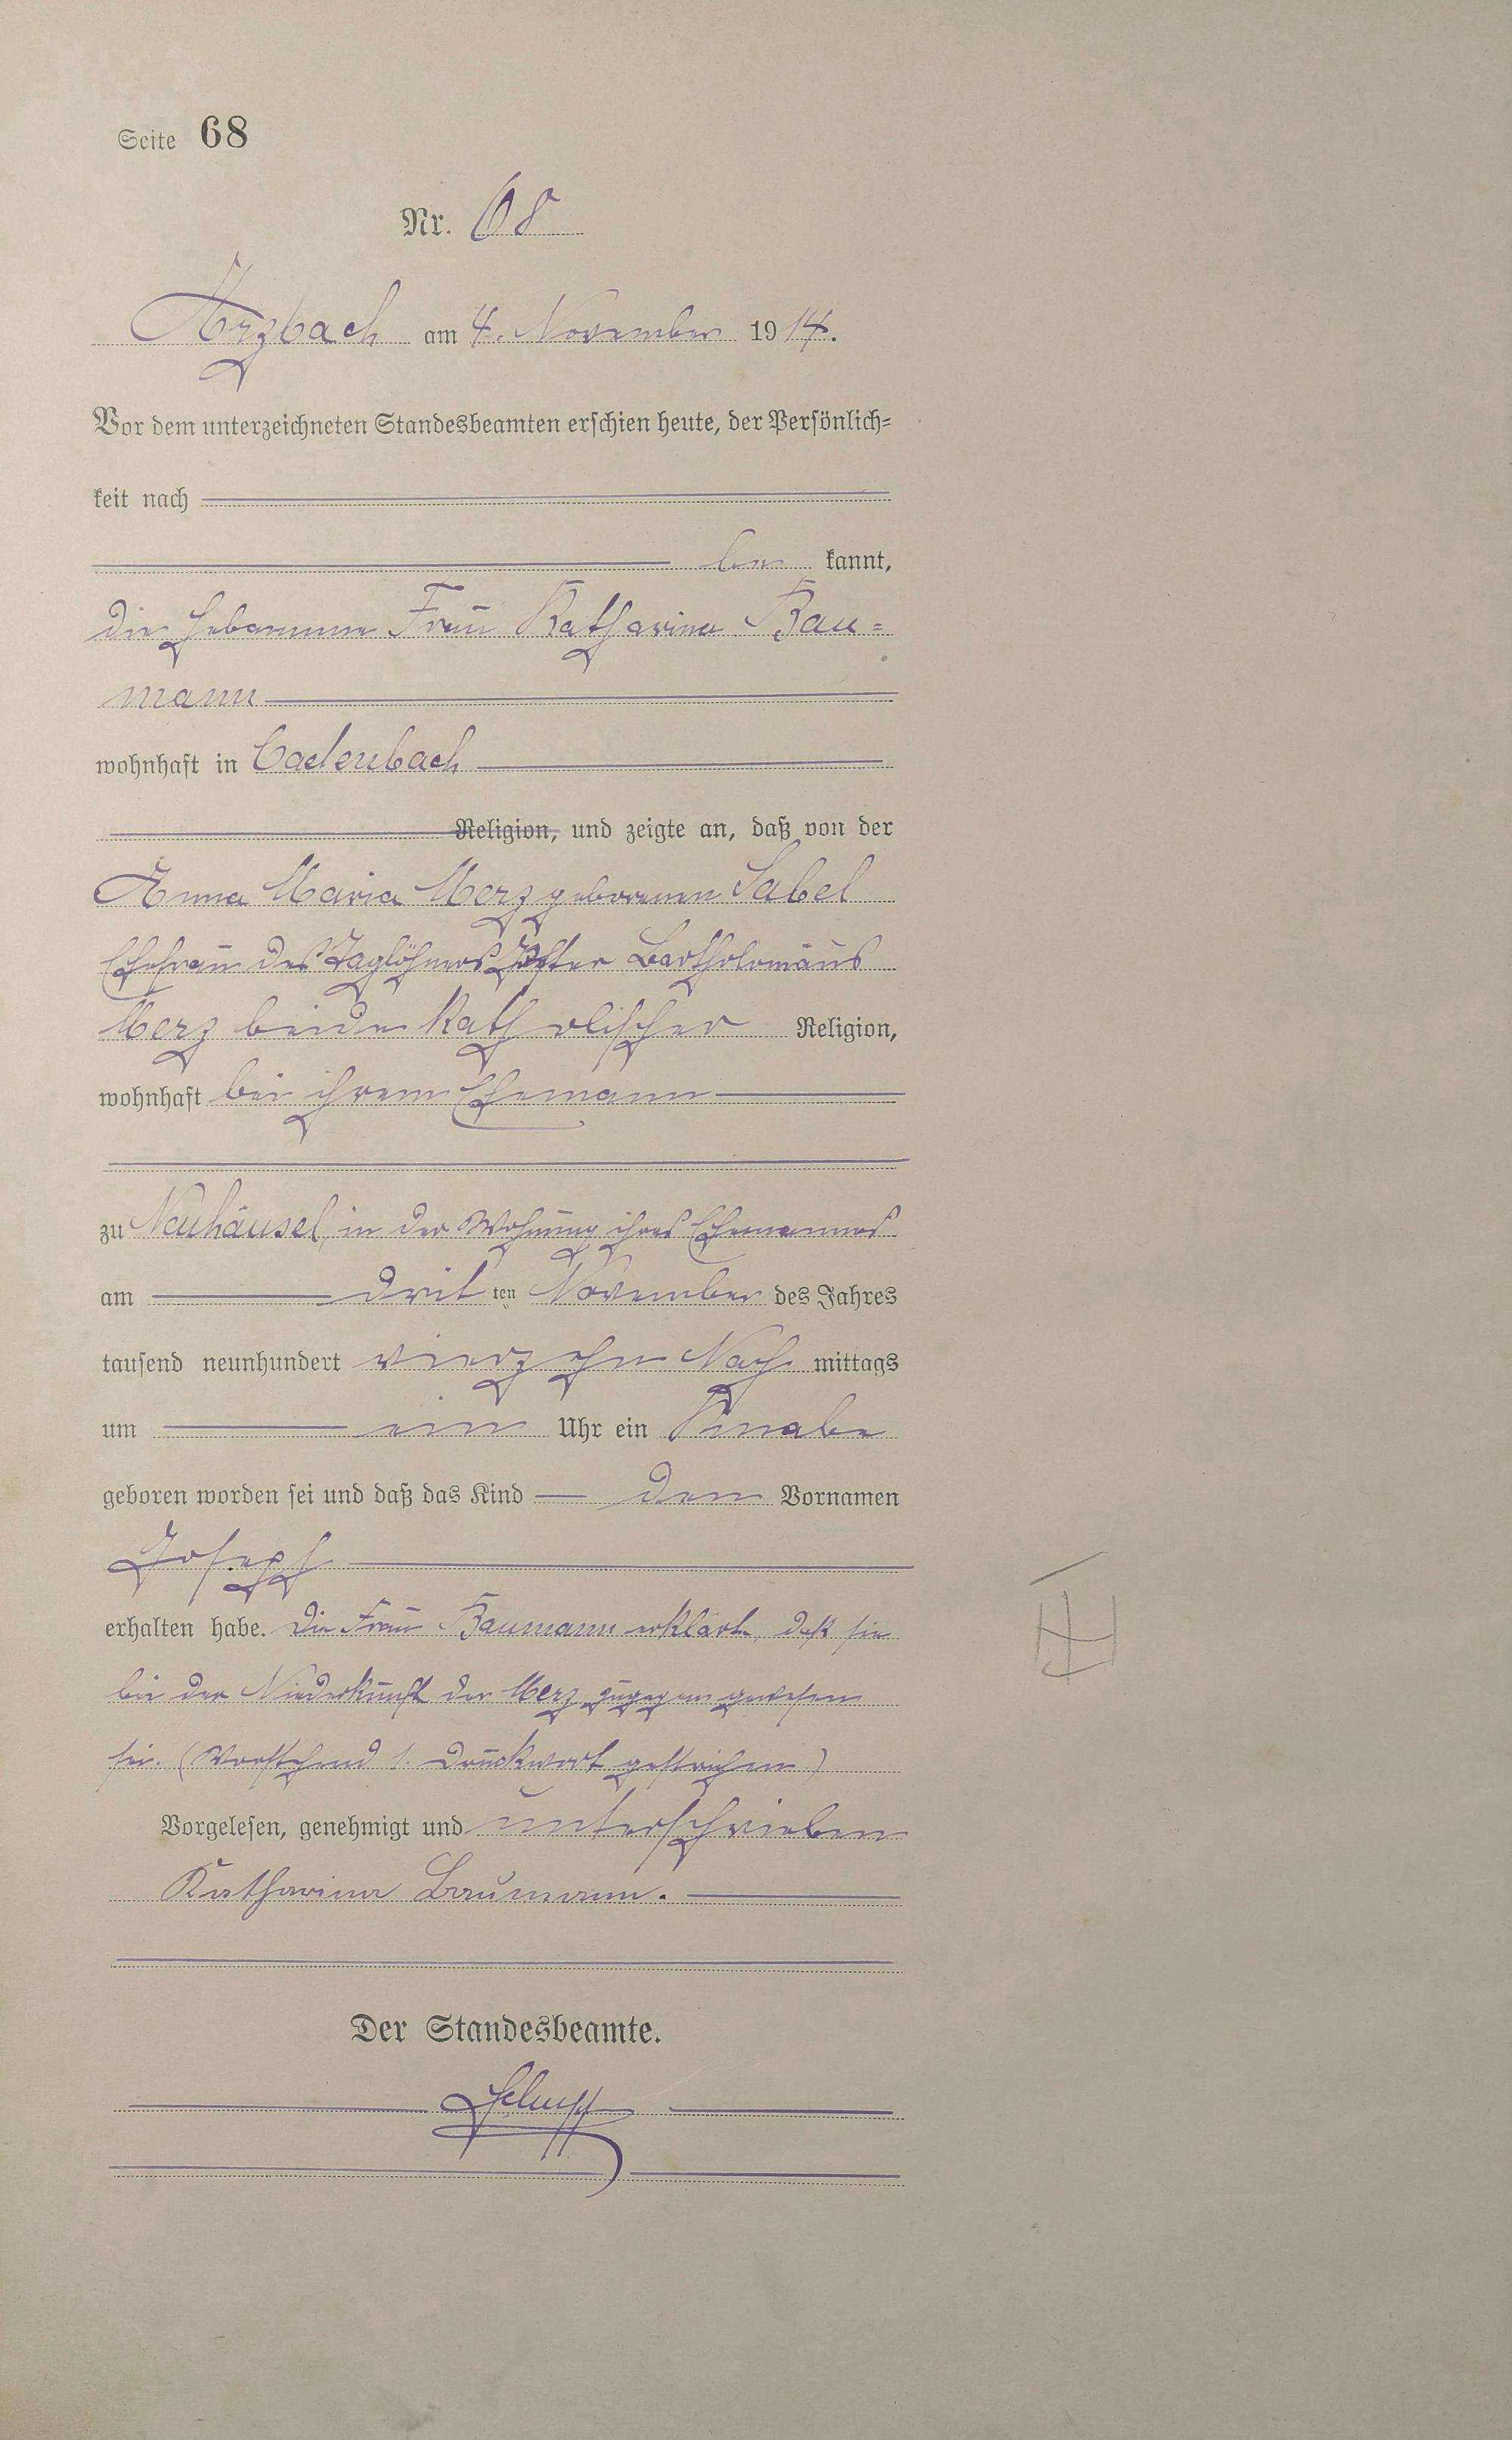 Seite 68
Nr. 68
Arzbach am 4. November 1914.
Vor dem unterzeichneten Standesbeamten erschien heute, der Persönlich=
keit nach
be kannt,
die Hebamme Frau Katharina Bau=
mann
wohnhaft in Cadenbach
Religion, und zeigte an, daß von der
Anna Maria Merz geborenen Sabel
Ehefrau des Taglöhners Bartholomäus
Merz beide katholischer Religion,
wohnhaft bei ihrem Ehemann
zu Neuhäusel, in der Wohnung ihres Ehemannes
am drit ten November des Jahres
tausend neunhundert vierzehn Nach mittags
um ein Uhr ein Knabe
geboren worden sei und daß das Kind den Vornamen
Joseph
erhalten habe. Die Frau Baumann erklärte, daß sie
bei der Niederkunft der Merz zugegen gewesen
sei. (Vorstehend 1. Druckwort gestrichen.)
Vorgelesen, genehmigt und unterschrieben
Katharina Baumann.
Der Standesbeamte.